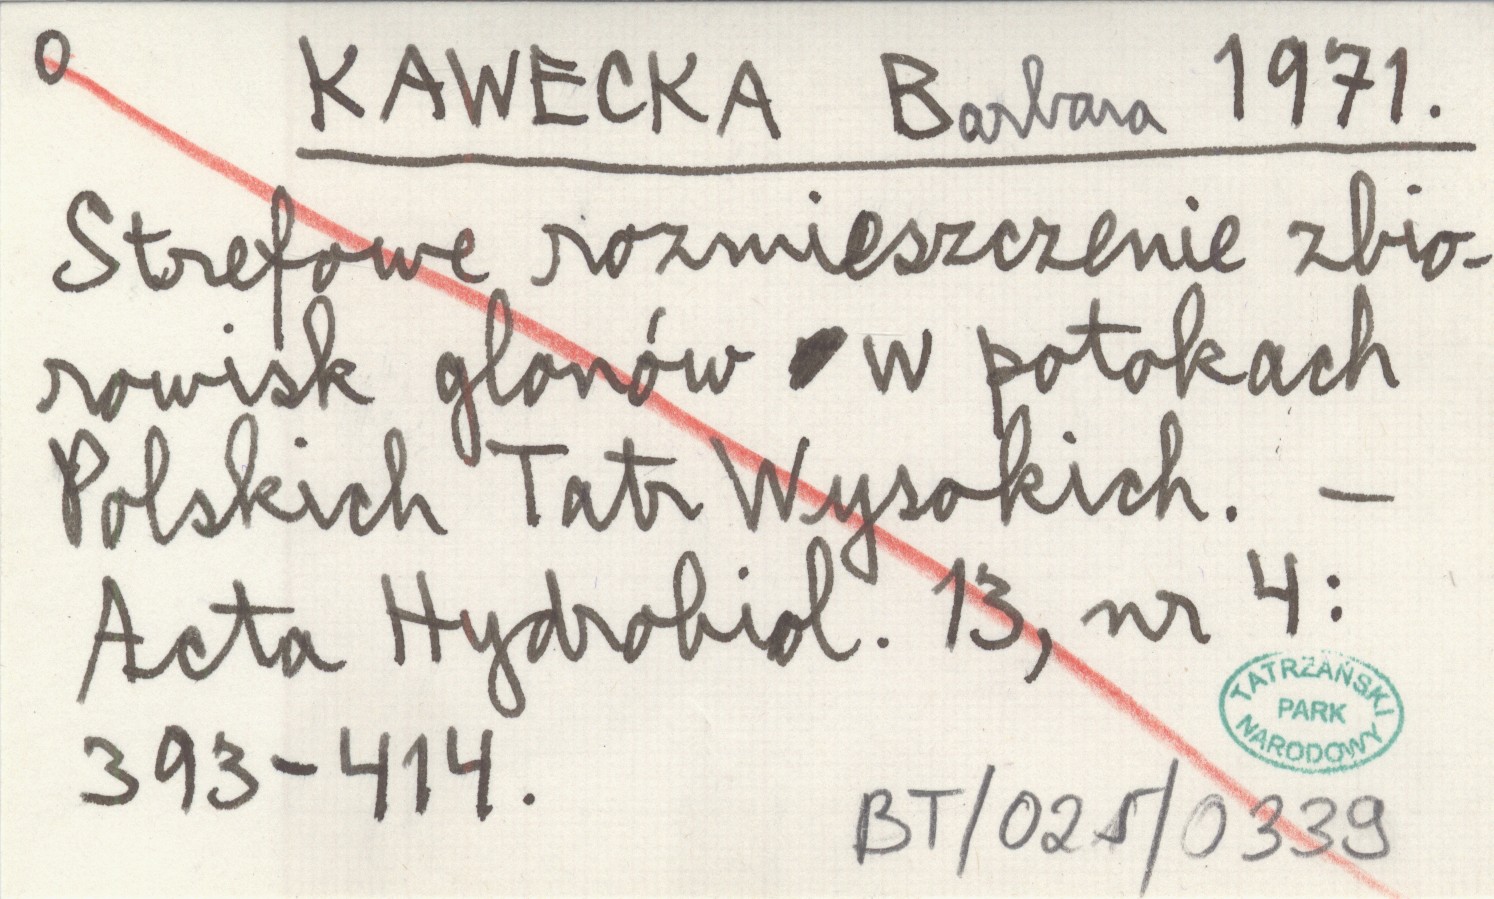 O
KAWECKA Barbara 1971.
Strefowe rozmieszczenie zbio-
rowisk glonów w potokach
Polskich Tatr Wysokich. —
Acta Hydrobiol. 13, nr 4:
393-414.
TATRZAŃSKI
PARK
NARODOWY
BT/025/0339